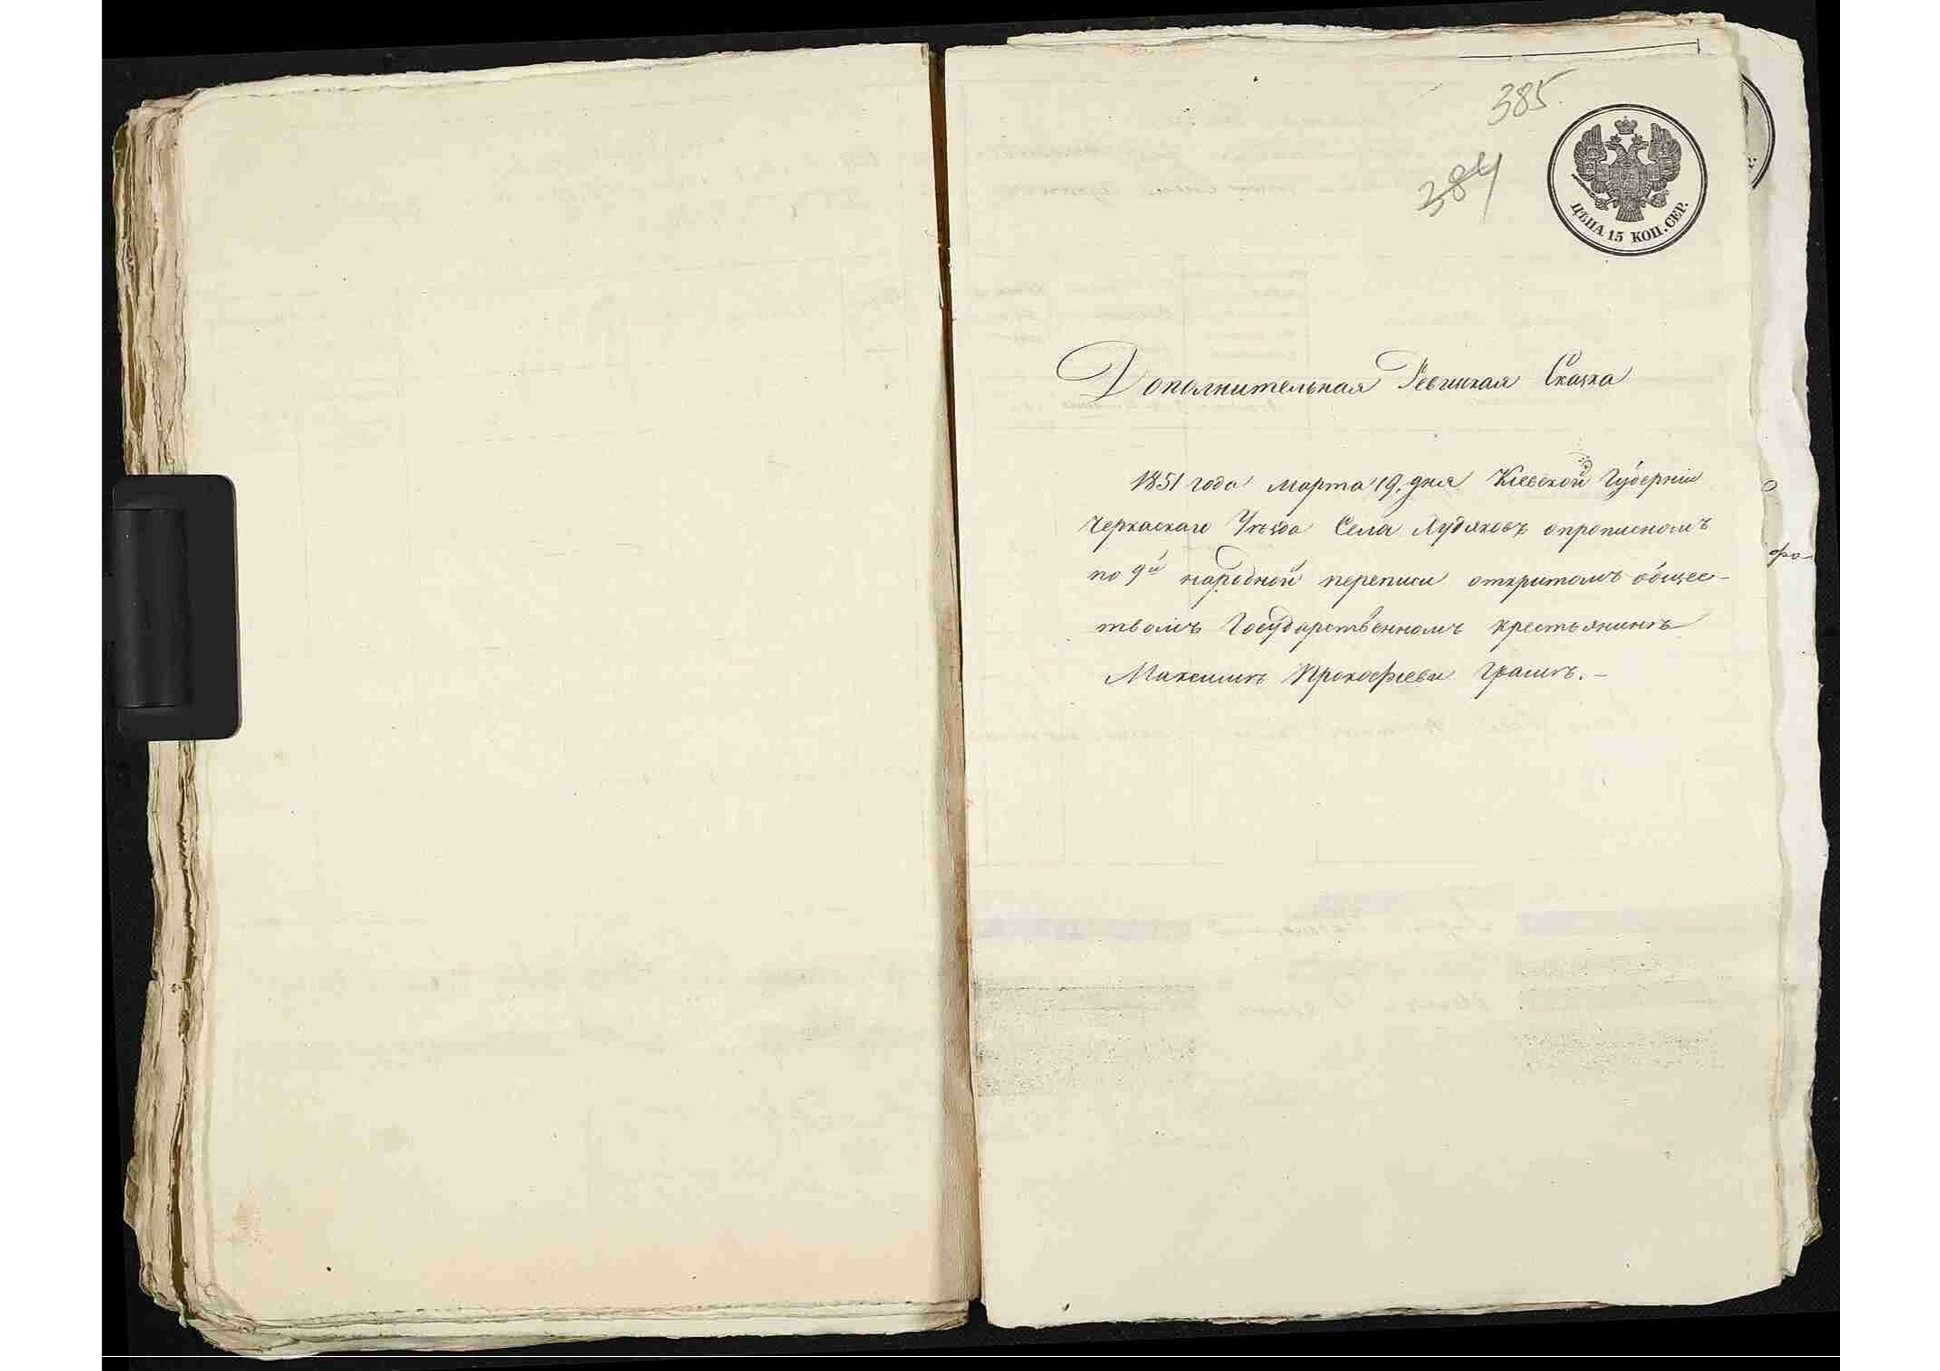 385.
384
ЦѢНА 15 КОП. СЕР.
Дополнительная Ревизкая Сказка
1851 года Марта 19. дня Кіевской Губерніи
Черкаскаго Уѣзда Села Худяковъ о прописномъ
по 9й народной переписи открытомъ общес-
твомъ Государственномъ крестьянинѣ
Максимѣ Прокофіеви